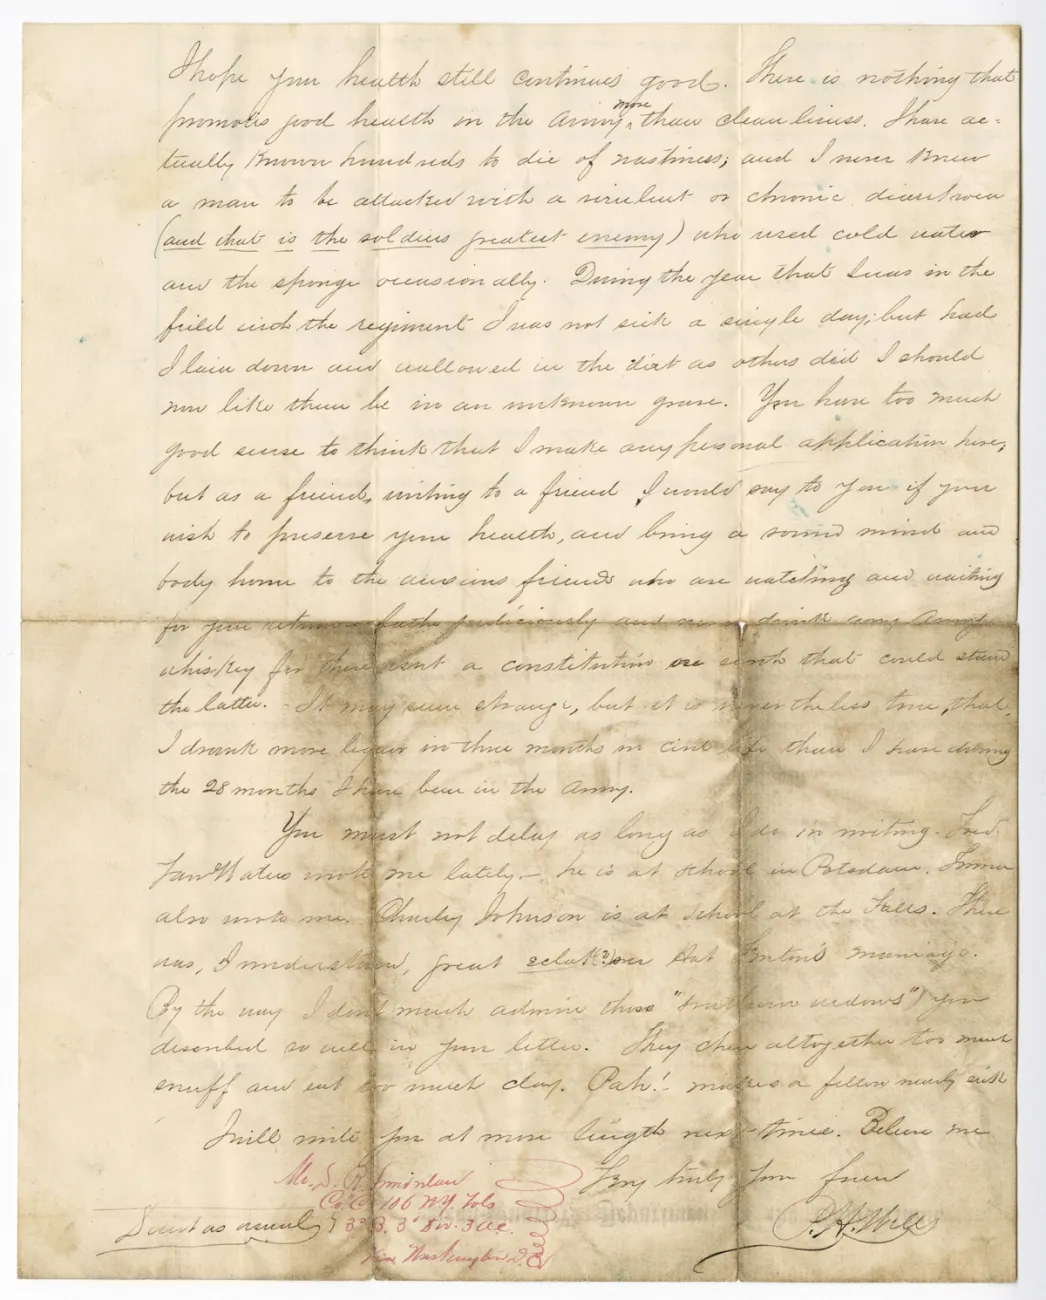 I hope your health still continues good. There is nothing that
promotes good health in the army more than cleanliness. I have ac-
tually known hundreds to die of nastiness; and I never knew
a man to be attacked with a virulent or chronic diarrhoea
(and that is the soldiers greatest enemy) who used cold water
and the sponge occasionally. During the year that I was in the
field with the regiment I was not sick a single day; but had
I lain down and wallowed in the dirt as others did I should
now like them be in an unknown grave. You have too much
good sense to think that I make any personal application here,
but as a friend, writing to a friend I would say to you if you
wish to preserve your health, and bring a sound mind and
body home to the anxious friends who are watching and waiting
for your return bathe judiciously and drink any Army
whiskey for there isnt a constitution on earth that could stand
the latter. - It may seem strange, but it is nevertheless true, that,
I drank more liquor in three months in civil life than I have during
the 28 months I have been in the Army.
You must not delay as long as I do in writing. Fred.
Van Waters wrote me lately. - he is at school in Potsdam. Emma
also wrote me. Charley Johnson is at school at the Falls. There
was, I understand, great eclat(?) over Hat Fenton's marriage.
By the way I don't much admire those "southern widows") you
described so well in your letter. They chew altogether too much
snuff and eat too much clay. Pah! - makes a fellow nearly sick
I will write you at more length next time. Believe me
Very truly your friend
P.H. Wells
Mr. S. R.
Co. C. 106 N.Y. Vols
Direct as usual) 3d B. 3d Div. 3 A.C.
via Washington D.C.